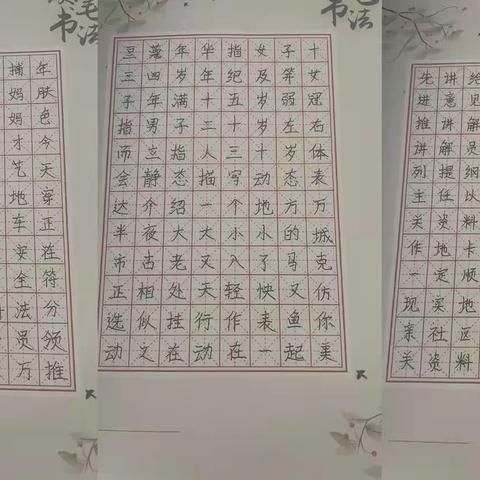 书法
捕年
妈肤
妈色
才今
艺天
地穿
车正
安在
全符
法分
员领
万推
豆蔻年华指女子十
三四岁年纪及笄女
子年满十五岁弱冠
指男子二十岁左右
而立指人三十岁体
会静态描写动态表
达介绍一个地方万
半夜大大小小的城
市古老又入了马克
正相处天轻快又仿
选似挂行作表鱼你
动文在动在一起美
先讲给
进意见
推讲解
讲解员
列提纲
主任以
关资料
作地卡
一定顺
现实地
亲社区
关资料